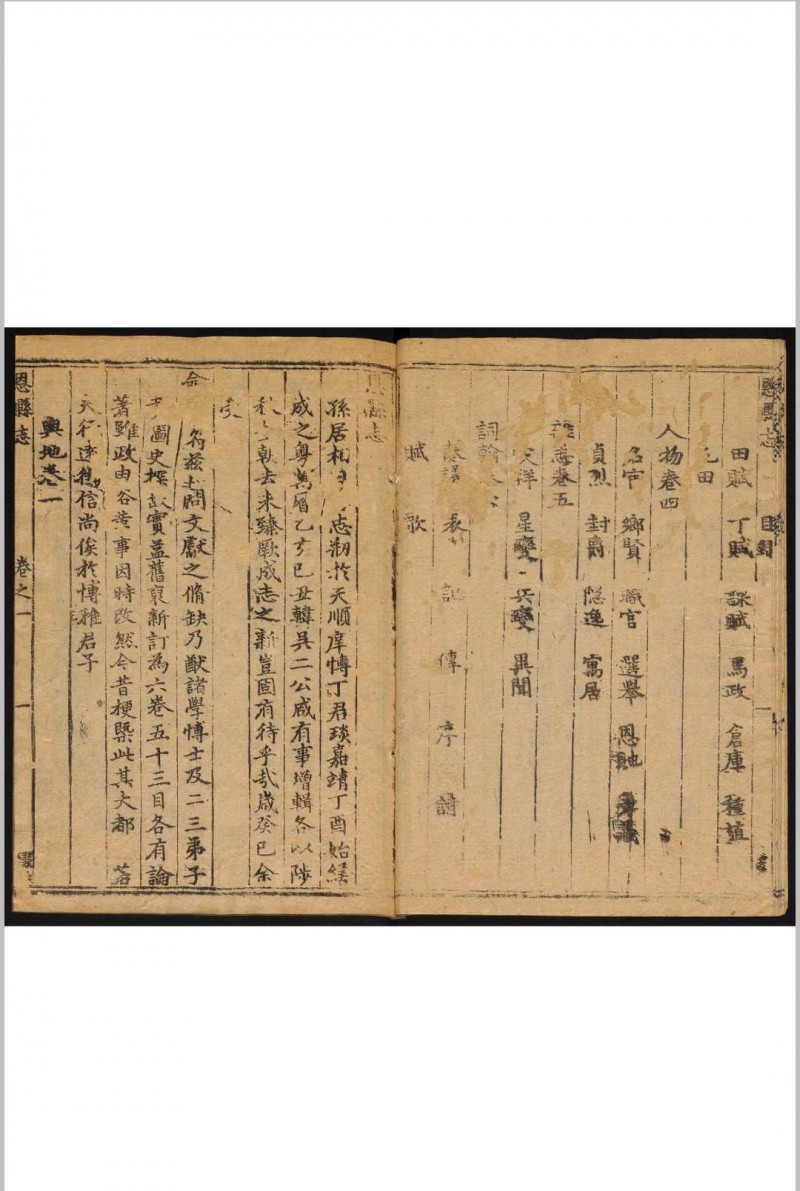 恩縣志
目錄
田賦 丁賦 課賦 馬政 倉庫 種植
屯田
人物卷四
名宦 鄉賢 職官 選舉 恩
貞烈 封爵 隱逸 寓居
雜志卷五
災祥 星變 兵變 異聞
詞翰
表 記 傳 序 詩
賦 歌
恩縣志
孫居相 志刱於天順庠愽丁君琰嘉靖丁酉始
成之粤萬曆乙亥己丑韓吳二公咸有事增輯各以陟
秩 去未臻厥成志之新豈固有待乎哉歲癸巳余
命
茲土問文獻之脩缺乃猷諸學愽士及二三弟子
圖史探 實益舊裒新訂為六卷五十三目各有論
著雖政由谷 事因時改然今昔梗槩此其大都 若
信尚俟於博雅君子
輿地卷一
恩縣志
卷之一
一